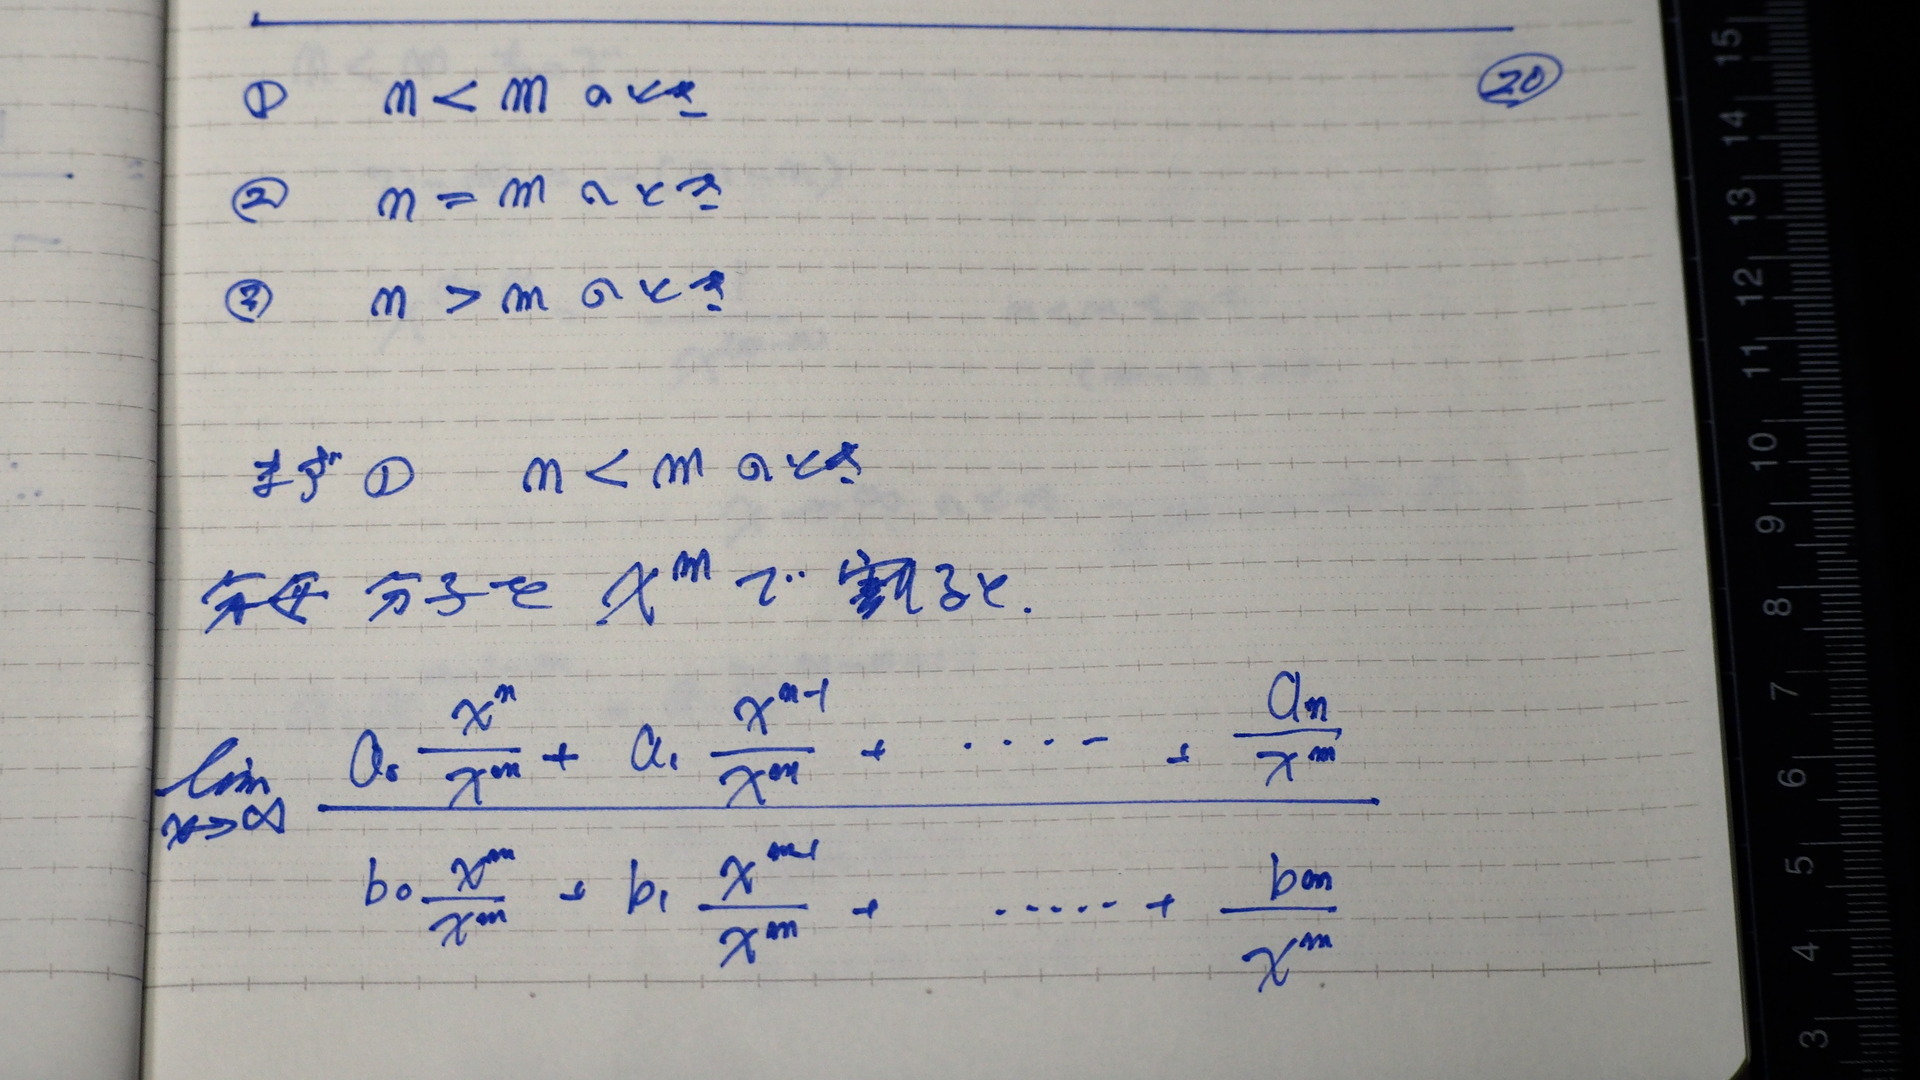 ① n < m のとき ⑳
② n = m のとき
③ n > m のとき
まず ① n < m のとき
分母 分子を x^m で 割ると.
lim x→∞ (a₀ x^n/x^m + a₁ x^(n-1)/x^m + ····- + a_n/x^m) / (b₀ x^m/x^m + b₁ x^(m-1)/x^m + ····· + b_m/x^m)
15
14
13
12
11
10
9
8
7
6
5
4
3